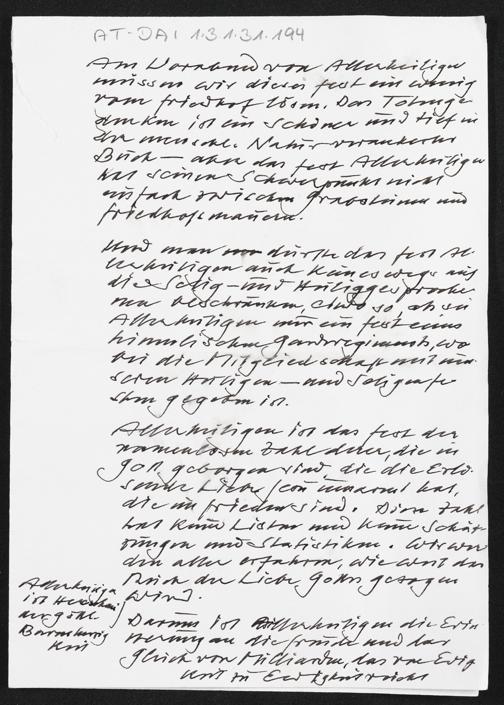 AT-DAI 1.3.1.31.194
Am Vorabend von Allerheiligen
müssen wir dieses Fest ein wenig
vom Friedhof lösen. Das Totenge-
denken ist ein schöner und tief in
der menschl. Natur verankerter
Brauch – aber das Fest Allerheiligen
hat seinen Schwerpunkt nicht
einfach zwischen Grabsteinen und
Friedhofsmauern.
Und man dürfte das Fest Al-
lerheiligen auch keineswegs auf
die Selig- und Heiliggesproche-
nen beschränken, etwa so, als sei
Allerheiligen nur ein Fest eines
himmlischen Garderegiments, wo
bei die Mitgliedschaft mit un-
seren Heiligen- und Seligen
gegeben ist.
Allerheiligen ist das Fest der
namenlosen Zahl derer, die in
Gott geborgen sind, die die Erlö-
sende Liebe schon umarmt hat,
die in Frieden sind. Diese Zahl
hat keine Listen und keine Schät-
zungen und Statistiken. Wir wer-
den alle erfahren, wie weit das
Reich der Liebe Gottes gezogen
wird.
Allerheiligen
ist
der göttl.
Barmherzig
keit
Darum ist Allerheiligen die Erin-
nerung an die Freude und das
Glück von Milliarden, das von Ewig
keit zu Ewigkeit reicht